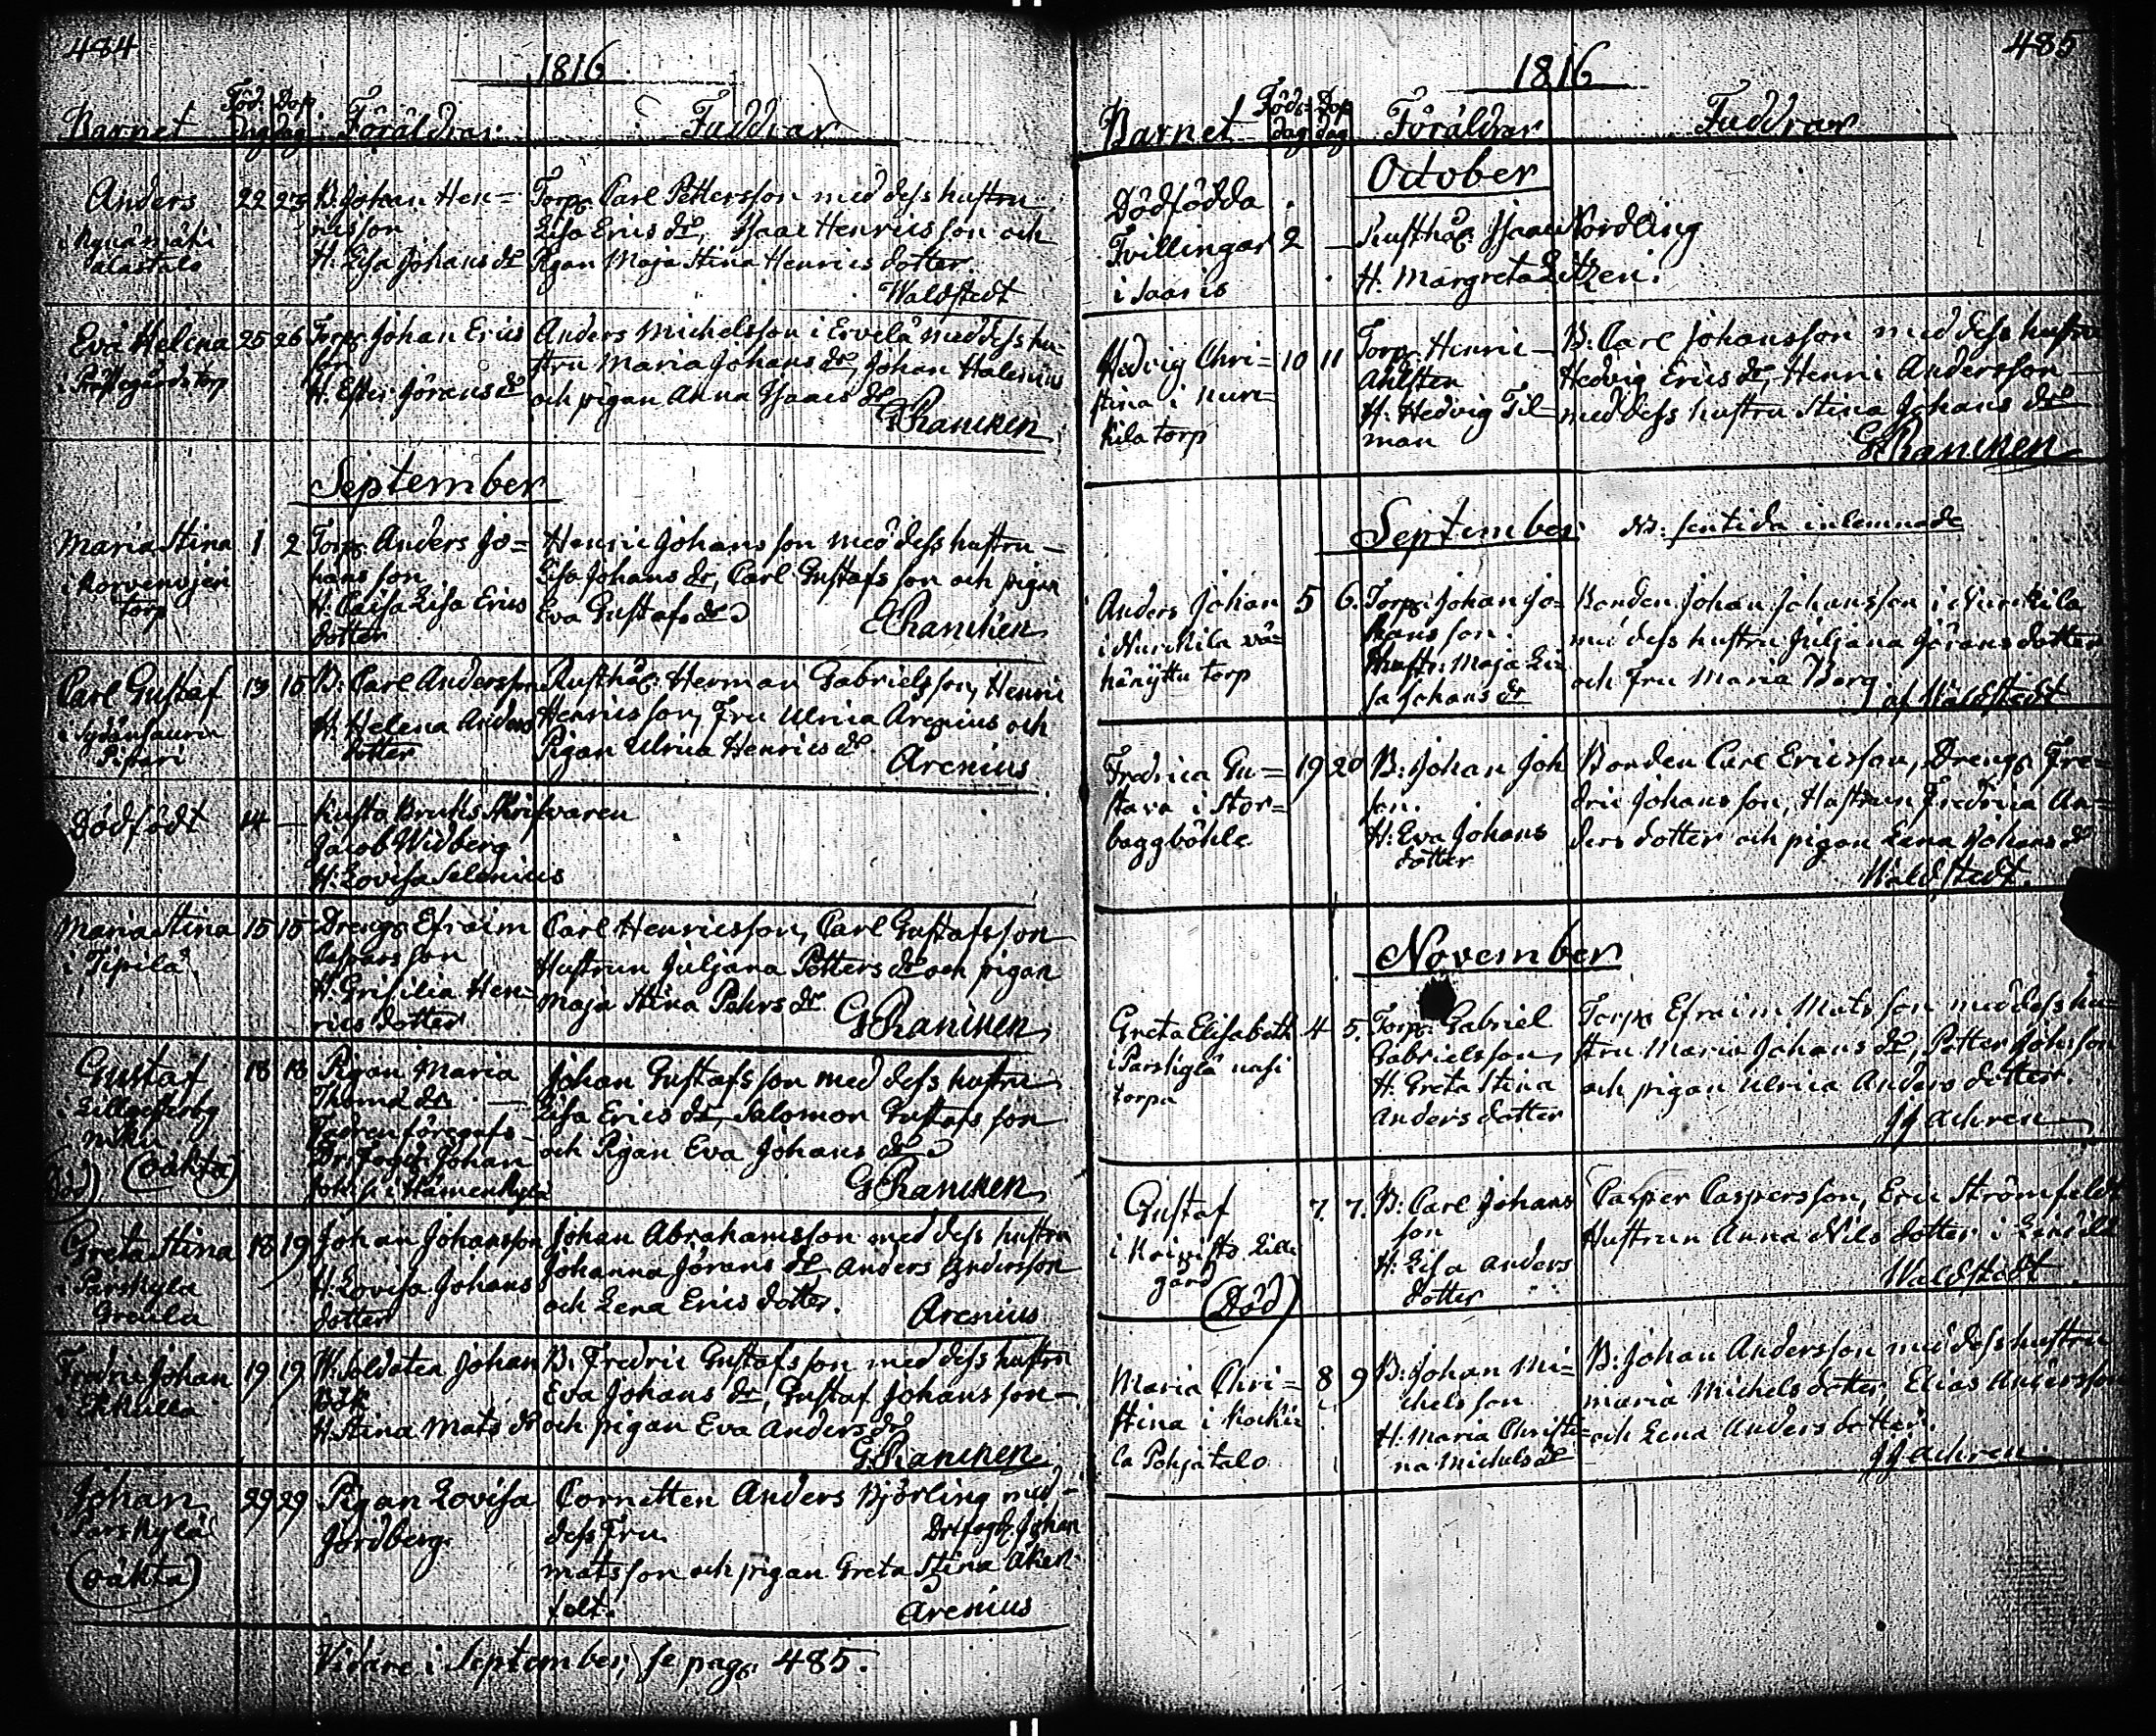 484
1816
Barnet Föd. dag Dop dag Föräldrar Faddrar
Anders 22 23 B. Johan Hen= Torp. Carl Pettersson med dess hustru
ricsson Lisa Erics dr, Isaac Henricsson och
alastalo H. Lisa Johans dr Pigan Maja Stina Henrics dotter.
Waldstedt
Eva Helena 25 26 Torp. Johan Erics Anders Michelsson i Ervelä med dess hu=
son stru Maria Johans dr, Johan Halenius
i Prästegårds torp H. Ester Jörans dr och pigan Anna Isaacs dr
G Rancken
September
Maria Stina 1 2 Torp. Anders Jo= Henric Johansson med dess hustru
hansson Lisa Johans dr, Carl Gustafsson och pigan
torp H. Caisa Lisa Erics Eva Gustafs dr
dotter G Rancken
Carl Gustaf 13 15 B. Carl Andersson Rusthål. Herman Gabrielsson, Henric
H. Helena Anders Henricsson, Fru Ulrica Arenius och
Pippari dotter Pigan Ulrica Henrics dr
Arenius
Dödfödt 14 — Kusta Bruks Skrifvaren
Jacob Widberg
H. Lovisa Selenius
Maria Stina 15 15 Dreng. Efraim Carl Henricsson, Carl Gustafsson
i Tipilä Caspersson Hustrun Juljana Petters dr och pigan
H. Grisilia Hen= Maja Stina Pehrs dr
rics dotter G Rancken
Gustaf 18 18 Pigan Maria Johan Gustafsson med dess hustru
Thomæ dr — Lisa Erics dr, Salomon Gustafsson
och Pigan Eva Johans dr
(oäkta) Johan
G Rancken
Greta Stina 18 19 Johan Johansson Johan Abrahamsson med dess hustru
i Parskylä H. Lovisa Johans Johanna Jörans dr, Anders Andersson
Greula dotter och Lena Erics dotter.
Arenius
Fredric Johan 19 19 W. Soldaten Johan B. Fredric Gustafsson med dess hustru
Böök Eva Johans dr, Gustaf Johansson
H. Stina Mats dr och pigan Eva Anders dr
G Rancken
Johan 29 29 Pigan Lovisa Cornetten Anders Björling med
i Parskylä Jordberg. dess Fru Johan
(oäkta) matsson och pigan Greta Stina Åker=
felt.
Arenius
Vidare i September, se pag. 485.
485
1816
Barnet Föds= dag Dop dag Föräldrar Faddrar
October
Dödfödda
Tvillingar 2 — Rusthål. Isaac Nordling
i Saaris H. Margreta Litzen.
Hedvig Chri= 10 11 Torp. Henric B. Carl Johansson med dess hustru
stina i Nure= Ahlsten Hedvig Erics dr, Henric Andersson
kila torp H. Hedvig Til= med dess hustru Stina Johans dr
man G Rancken
September NB: sent ida inlemnade
Anders Johan 5 6. Torp. Johan Jo= Bonden Johan Johansson i Nurkila
i Nurkila vä= hansson. med dess hustru Juljana Jörans dotter
hänyttu torp Hustr. Maja Li= och Fru Maria Borg
sa Johans dr af Waldstedt
Fredrica Gu= 19 20 B: Johan Joh Bonden Carl Ericsson, Dreng. Fre=
stava i Stor= son. dric Johansson, Hustrun Fredrica An=
baggböhle H. Eva Johans ders dotter och pigan Lena Johans dr
dotter Waldstedt.
November
Greta Elisabeth 4 5. Torp. Gabriel Torp. Efraim Matsson med dess hu=
Gabrielsson, stru Maria Johans dr, Petter Johsson
torpa H. Greta Stina och pigan Ulrica Anders dotter.
Anders dotter Achren
Gustaf 7. 7. B: Carl Johans Casper Caspersson, Eric Strömfeldt
i Koivisto Lille son Hustrun Anna Nils dotter i
gård H. Lisa Anders Waldstedt
(Död) dotter
Maria Chri= 8 9 B: Johan Mi= B: Johan Andersson med dess hustru
stina i Kocki= chelsson Maria Michels dotter, Elias Andersson
la Pohjatalo H. Maria Christi= och Lena Anders dotter.
na Michels dr Achren